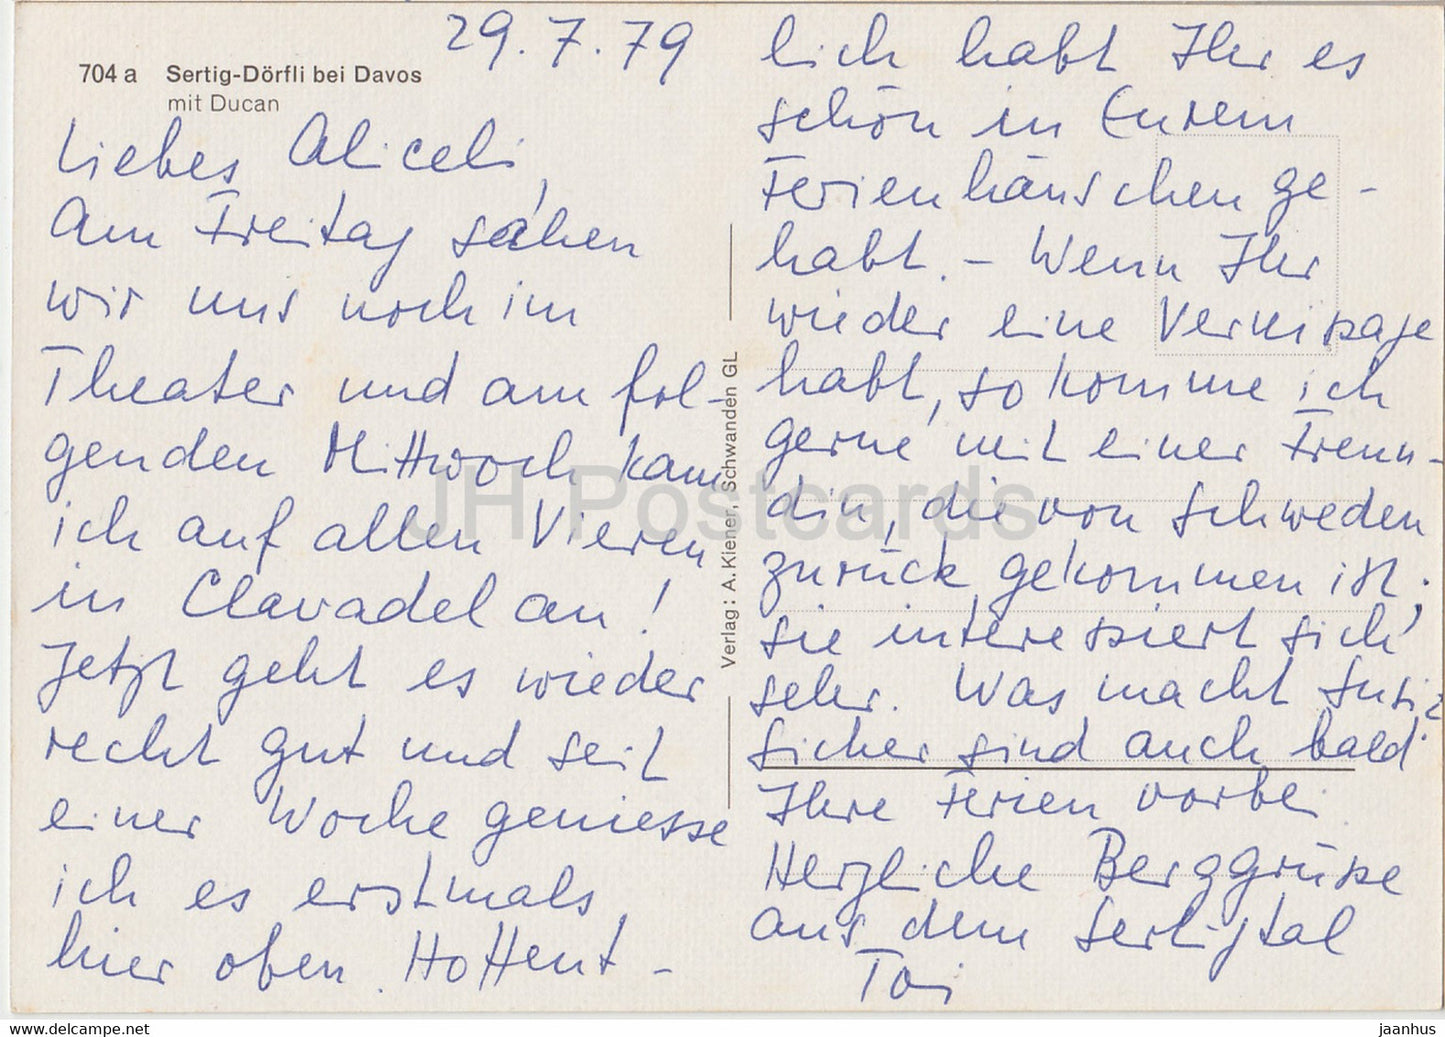 29.7.79
704 a Sertig-Dörfli bei Davos
mit Ducan
Liebes Aliceli,
Am Freitag sahen
wir uns noch im
Theater und am fol-
genden Mittwoch kam
ich auf allen Vieren
in Clavadel an!
Jetzt geht es wieder
recht gut und seit
einer Woche geniesse
ich es erstmals
hier oben. Hoffent-
lich habt Ihr es
schön in Eurem
Ferienhäuschen ge-
habt. – Wenn Ihr
wieder eine Vernissage
habt, so komme ich
gerne mit einer Freun-
din, die von Schweden
zurück gekommen ist;
sie interessiert sich
sehr. Was macht
Sicher sind auch bald
Ihre Ferien vorbei
Herzliche Berggrüsse
aus dem Sertigtal
Toi
Verlag: A. Kiener, Schwanden GL
JH Postcards
www.hippostcard.com
jaanhus